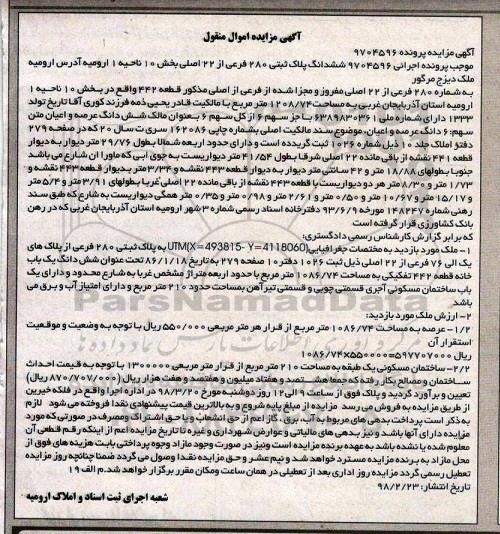 آگهی مزایده اموال منقول
آگهی مزایده پرونده ۹۷۰۴۵۹۶
موجب پرونده اجرائی ۹۷۰۴۵۹۶ ششدانگ پلاک ثبتی ۲۸۰ فرعی از ۲۲ اصلی بخش ۱۰ ناحیه ۱ ارومیه آدرس ارومیه
ملک دیزج مرگور
به شماره ۲۸۰ فرعی از ۲۲ اصلی مفروز و مجزا شده از فرعی از اصلی مذکور قطعه ۴۴۲ واقع در بخش ۱۰ ناحیه ۱
ارومیه استان آذربایجان غربی به مساحت ۱۲۰۸/۷۴ متر مربع با مالکیت قادر یحیی ذمه فرزند کوری آقا تاریخ تولد
۱۳۳۳ دارای شماره ملی ۶۳۸۹۸۳۰۳۶۱ با جز سهم ۶ از کل سهم ۶ بعنوان مالک شش دانگ عرصه و اعیان متن
سهم: ۶ دانگ عرصه و اعیان، موضوع سند مالکیت اصلی بشماره چاپی ۱۶۲۰۸۶ سری ت سال ۲۰ که در صفحه ۲۷۹
دفتر املاک جلد ۱۰ ذیل شماره ۱۰۲۶ ثبت گردیده است و دارای حدود اربعه شمالا بطول ۲۹/۷۶ متر دیوار به دیوار
قطعه ۴۴۱ نقشه از باقی مانده ۲۲ اصلی شرقا بطول ۴۱/۵۴ متر دیواریست به جوی آبی که ماورا آن شارع می باشد
جنوبا بطولهای ۱۸/۸۸ متر و ۴۲ سانتی متر دیوار به دیوار قطعه ۴۴۳ نقشه و ۳/۳۴ متر بدیوار قطعه ۴۴۳ نقشه و
۱/۷۳ متر و ۸/۳۰ متر هر دو دیواریست با قطعه ۴۴۳ نقشه از باقی مانده ۲۲ اصلی غربا بطولهای ۳/۹۱ متر و ۵/۴ متر
و ۱۵/۱۷ متر و ۱۰/۶۷ متر و ۰/۵۰ متر و ۲/۶۱ متر و ۰/۹۸ متر و ۰/۳۵ متر همگی دیواریست به شارع که طبق سند
رهنی شماره ۱۴۸۲۴۷ مورخ ۹۳/۶/۹ دفترخانه اسناد رسمی شماره ۳ شهر ارومیه استان آذربایجان غربی که در رهن
بانک کشاورزی قرار گرفته است
که برابر گزارش کارشناس رسمی دادگستری:
۱- ملک مورد بازدید به مختصات جغرافیایی UTM(X=493815- Y=4118060) به پلاک ثبتی ۲۸۰ فرعی از پلاک های
یک الی ۷۶ فرعی از ۲۲ اصلی ذیل ثبت ۱۰۲۶ دفتر ۱۰ صفحه ۲۷۹ به تاریخ ۸۶/۱/۱۸ تحت عنوان شش دانگ یک باب
خانه قطعه ۴۴۲ تفکیکی به مساحت ۱۰۸۶/۷۴ متر مربع با حدود اربعه متراژ مشخص غربا به شارع محدود و دارای یک
باب ساختمان مسکونی آجری قسمتی چوبی و قسمتی تیرآهن بمساحت حدود ۲۱۰ متر مربع و دارای امتیاز آب و برق می
باشد
۲- ارزش ملک مورد بازدید:
۱/۲- عرصه به مساحت ۱۰۸۶/۷۴ متر مربع از قرار هر متر مربعی ۵۵۰/۰۰۰ ریال با توجه به وضعیت و موقعیت
استقرار آن
ریال ۵۹۷۷۰۷۰۰۰=۵۵۰۰۰۰×۱۰۸۶/۷۴
۲/۲- ساختمان مسکونی یک طبقه به مساحت ۲۱۰ متر از قرار متر مربعی ۱۳۰۰۰۰۰ با توجه به قیمت احداث
ساختمان و مصالح بکار رفته که جمعا هشتصد و هفتاد میلیون و هفتصد و هفت هزار ریال (۸۷۰/۷۰۷/۰۰۰ ریال)
تعیین و برآورد گردید و پلاک فوق از ساعت ۹ الی ۱۲ روز دوشنبه مورخ ۹۸/۳/۲۰ در اداره اجرا واقع در فلکه خیرین
از طریق مزایده به فروش می رسد مزایده از مبلغ پایه شروع و به بالاترین قیمت پیشنهادی نقدا فروخته می شود لازم
به ذکر است پرداخت بدهی های مربوط به آب، برق، گاز اعم از حق انشعاب و یا حق اشتراک و مصرف در صورتی که مورد
مزایده دارای آنها باشد و نیز بدهی های مالیاتی و عوارض شهرداری و غیره تا تاریخ مزایده اعم از اینکه رقم قطعی آن
معلوم شده یا نشده باشد به عهده برنده مزایده است ونیز در صورت وجود مازاد وجوه پرداختی بابت هزینه های فوق از
محل مازاد به برنده مزایده مسترد خواهد شد و نیم عشر و حق مزایده نقدا وصول می گردد ضمنا چنانچه روز مزایده
تعطیل رسمی گردد مزایده روز اداری بعد از تعطیلی در همان ساعت ومکان مقرر برگزار خواهد شد.م الف ۱۹
تاریخ انتشار: ۹۸/۲/۲۳
شعبه اجرای ثبت اسناد و املاک ارومیه
ParsNamadData